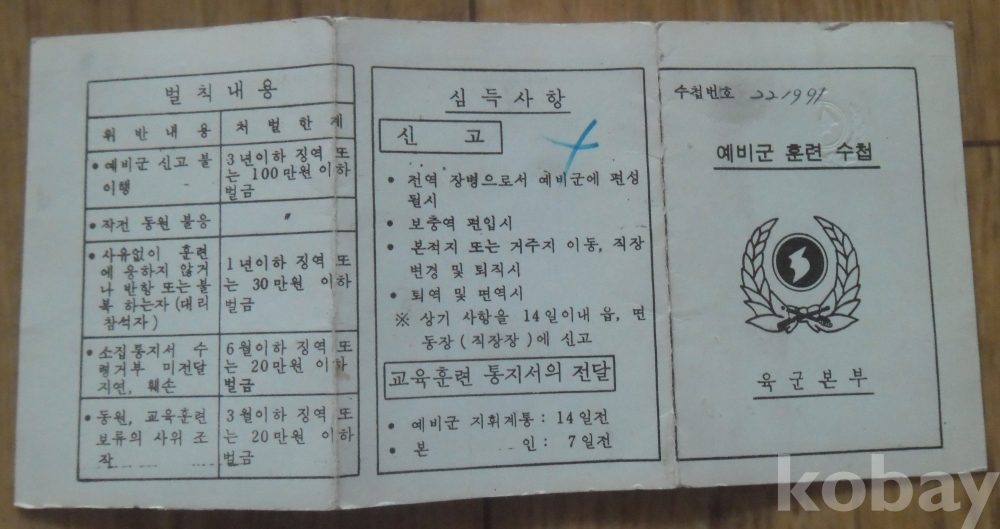 벌칙내용
위반내용 처벌한계
• 예비군 신고 불
이행
3년이하 징역 또
는 100만원 이하
벌금
• 작전 동원 불응
〃
• 사유없이 훈련
에 응하지 않거
나 반항 또는 불
복 하는자 (대리
참석자)
1년이하 징역 또
는 30만원 이하
벌금
• 소집통지서 수
령거부 미전달
지연, 훼손
6월이하 징역 또
는 20만원 이하
벌금
• 동원, 교육훈련
보류의 사위 조
작
3월이하 징역 또
는 20만원 이하
벌금
심득사항
신 고
• 전역 장병으로서 예비군에 편성
될시
• 보충역 편입시
• 본적지 또는 거주지 이동, 직장
변경 및 퇴직시
• 퇴역 및 면역시
※ 상기 사항을 14일이내 읍, 면
동장 (직장장)에 신고
교육훈련 통지서의 전달
• 예비군 지휘계통: 14일전
• 본 인: 7일전
수첩번호 221991
예비군 훈련 수첩
육군본부
kobay